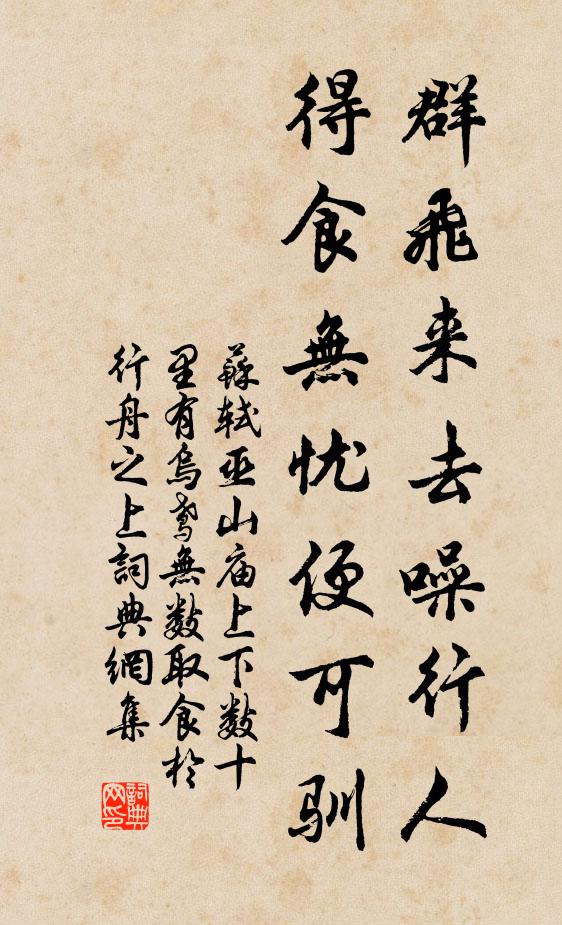 群飛来去噪行人
得食無忧便可驯
蘇轼巫山庙上下数十
里有烏鸢無数取食於
行舟之上詞典網集
詞典网印